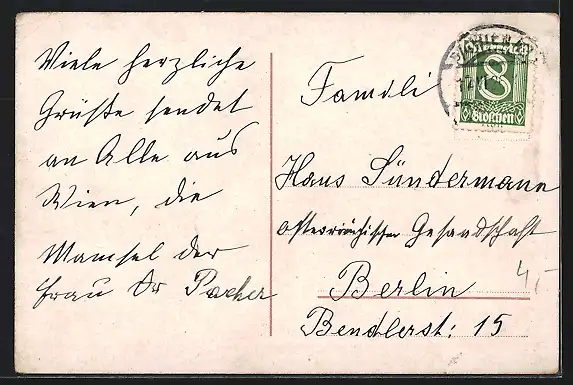 Viele herzliche
Grüße sendet
an Alle aus
Wien, die
Mamsel der
frau Dr Pacher
Famili
Hans Sündermann
österreichischer Gesandschaft
Berlin
Bendlerst: 15
4,-
8
Groschen